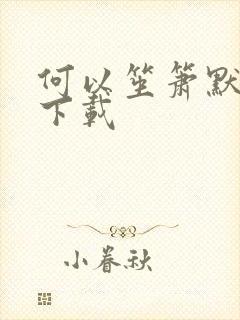 何以笙箫默
下载
小春秋